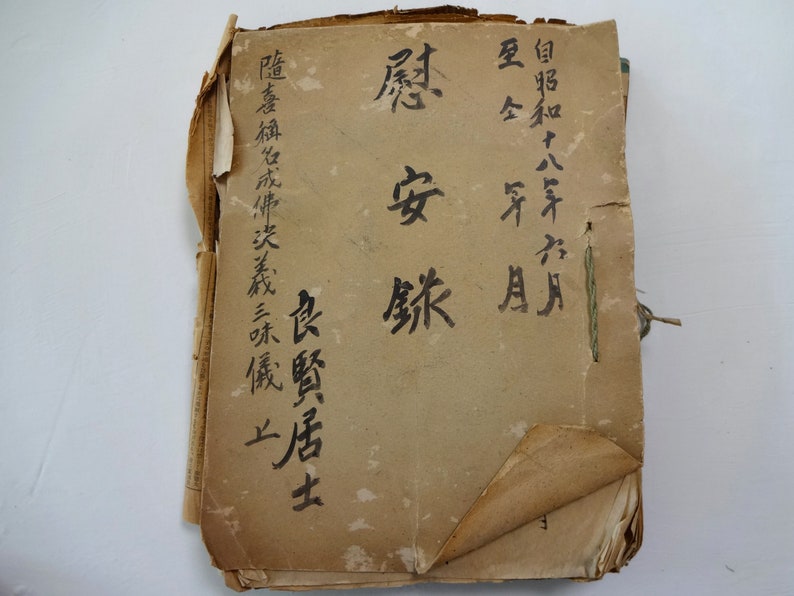 自昭和十八年六月
至仝年月
慰安録
良賢居士
隨喜稱名成佛决義三昧儀 上
月